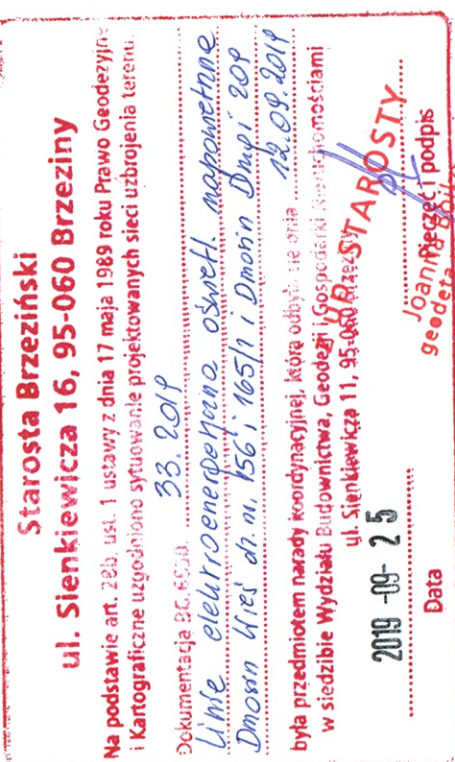 Starosta Brzeziński
ul. Sienkiewicza 16, 95-060 Brzeziny
Na podstawie art. 28b, ust. 1 ustawy z dnia 17 maja 1989 roku Prawo Geodezyjne
i Kartograficzne uzgodniono sytuowanie projektowanych sieci uzbrojenia terenu.
Dokumentacja 33.2019
Linie elektroenergetyczna oświetl. napowietrzne
Dmosin Wieś dr. nr. 156 i 165/1 i Dmosin Drugi 209
była przedmiotem narady koordynacyjnej, która odbyła się dnia 12.09.2019
w siedzibie Wydziału Budownictwa, Geodezji i Gospodarki Nieruchomościami
ul. Sienkiewicza 11, 95-060 Brzeziny
STAROSTY
2019 -09- 25
Joanna
geodeta
Data
Pieczęć i podpis